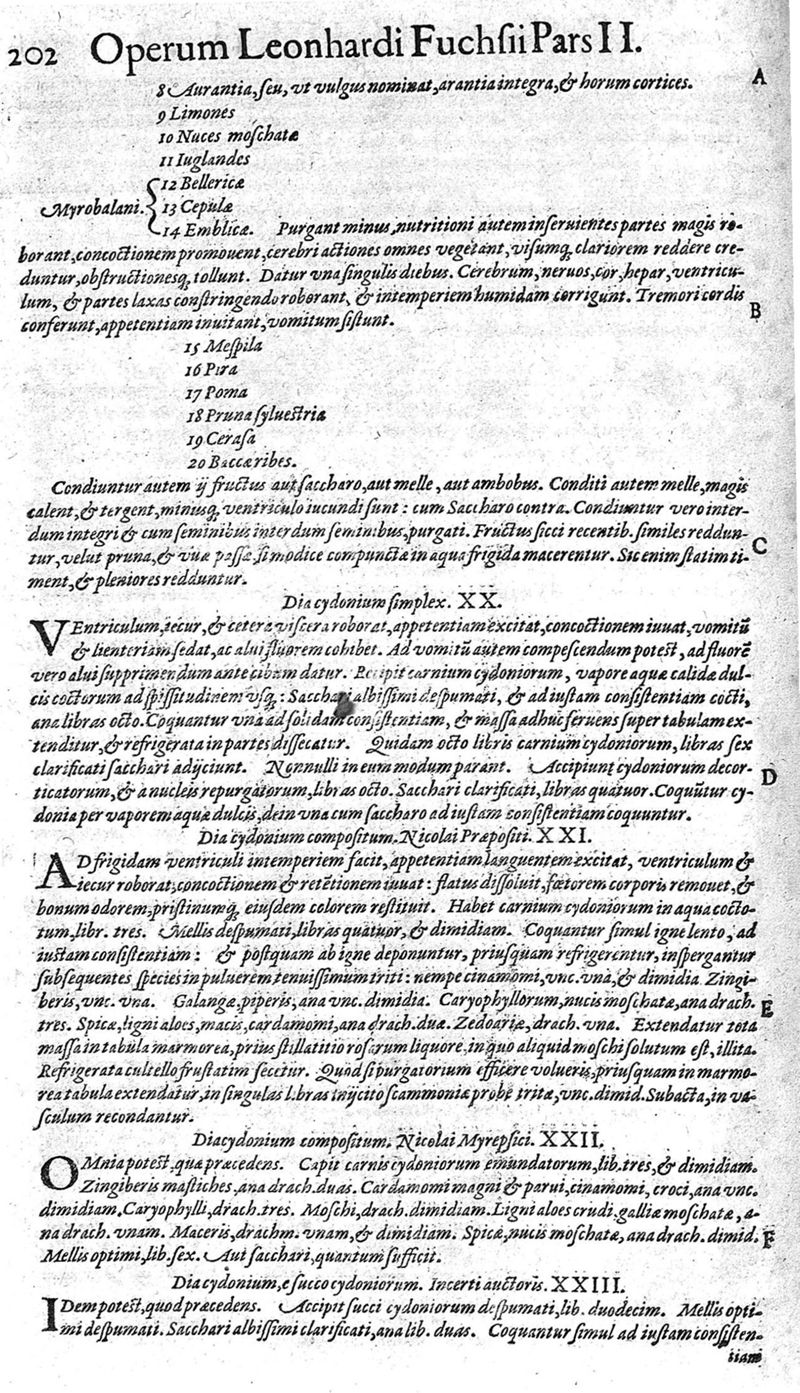 202 Operum Leonhardi Fuchſii Pars II.
8 Aurantia, ſeu, vt vulgus nominat, arantia integra, & horum cortices. A
9 Limones
10 Nuces moſchatæ
11 Iuglandes
12 Bellericæ
Myrobalani. 13 Cepulæ
14 Emblicæ. Purgant minus, nutritioni autem inſeruientes partes magis ro-
borant, concoctionem promouent, cerebri actiones omnes vegetant, viſumq́; clariorem reddere cre-
duntur, obſtructionesq́; tollunt. Datur vna ſingulis diebus. Cerebrum, neruos, cor, hepar, ventricu-
lum, & partes laxas conſtringendo roborant, & intemperiem humidam corrigunt. Tremori cordis
conferunt, appetentiam inuitant, vomitum ſiſtunt. B
15 Meſpila
16 Pira
17 Poma
18 Pruna ſylueſtria
19 Ceraſa
20 Baccæ ribes.
Condiuntur autem ij fructus aut ſaccharo, aut melle, aut ambobus. Conditi autem melle, magis
calent, & tergent, minusq́; ventriculo iucundi ſunt: cum Saccharo contra. Condiuntur vero inter-
dum integri & cum ſeminibus interdum ſeminibus, purgati. Fructus ſicci recentib. ſimiles reddun-
tur, velut pruna, & vuæ paſſæ, ſi modice compunctæ in aqua frigida macerentur. Sic enim ſtatim ti- C
ment, & pleniores redduntur.
Diacydonium ſimplex. XX.
VEntriculum, iecur, & cetera viſcera roborat, appetentiam excitat, concoctionem iuuat, vomitū
& lienteriam ſedat, ac alui fluorem cohibet. Ad vomitū autem compeſcendum poteſt, ad fluorē
vero alui ſupprimendum ante cibum datur. Recipit carnium cydoniorum, vapore aquæ calidæ dul-
cis coctorum ad ſpiſſitudinem vſq́;: Sacchari albiſſimi deſpumati, & ad iuſtam conſiſtentiam cocti,
ana libras octo. Coquantur vna ad ſolidam conſiſtentiam, & maſſa adhuc feruens ſuper tabulam ex-
tenditur, & refrigerata in partes diſſecatur. Quidam octo libris carnium cydoniorum, libras ſex
clarificati ſacchari adijciunt. Nonnulli in eum modum parant. Accipiunt cydoniorum decor-
ticatorum, & a nucleis repurgatorum, libras octo. Sacchari clarificati, libras quatuor. Coquūtur cy- D
donia per vaporem aquæ dulcis, dein vna cum ſaccharo ad iuſtam conſiſtentiam coquuntur.
Diacydonium compoſitum. Nicolai Præpoſiti. XXI.
AD frigidam ventriculi intemperiem facit, appetentiam languentem excitat, ventriculum &
iecur roborat, concoctionem & retētionem iuuat: flatus diſſoluit, fœtorem corporis remouet, &
bonum odorem, priſtinumq́; eiuſdem colorem reſtituit. Habet carnium cydoniorum in aqua cocto-
tum, libr. tres. Mellis deſpumati, libras quatuor, & dimidiam. Coquantur ſimul igne lento, ad
iuſtam conſiſtentiam: & poſtquam ab igne deponuntur, priuſquam refrigerentur, inſpergantur
ſubſequentes ſpecies in puluerem tenuiſſimum triti: nempe cinamomi, vnc. vna, & dimidia Zingi-
beris, vnc. vna. Galangæ, piperis, ana vnc. dimidia. Caryophyllorum, nucis moſchatæ, ana drach.
tres. Spicæ, ligni aloes, macis, cardamomi, ana drach. duæ. Zedoariæ, drach. vna. Extendatur tota E
maſſa in tabula marmorea, prius ſtillatitio roſarum liquore, in quo aliquid moſchi ſolutum eſt, illita.
Refrigerata cultello fruſtatim ſecetur. Quòd ſi purgatorium efficere volueris, priuſquam in marmo-
rea tabula extendatur, in ſingulas libras inijcito ſcammoniæ probè tritæ, vnc. dimid. Subacta, in va-
ſculum recondantur.
Diacydonium compoſitum. Nicolai Myrepſici. XXII.
OMnia poteſt, quæ præcedens. Capit carnis cydoniorum emundatorum, lib. tres, & dimidiam.
Zingiberis maſtiches, ana drach. duas. Cardamomi magni & parui, cinamomi, croci, ana vnc.
dimidiam. Caryophylli, drach. tres. Moſchi, drach. dimidiam. Ligni aloes crudi, galliæ moſchatæ, a-
na drach. vnam. Maceris, drachm. vnam, & dimidiam. Spicæ, nucis moſchatæ, ana drach. dimid. F
Mellis optimi, lib. ſex. Aut ſacchari, quantum ſufficit.
Diacydonium, e ſucco cydoniorum. Incerti auctoris. XXIII.
IDem poteſt, quod præcedens. Accipit ſucci cydoniorum deſpumati, lib. duodecim. Mellis opti-
mi deſpumati. Sacchari albiſſimi clarificati, ana lib. duas. Coquantur ſimul ad iuſtam conſiſten-
tiam